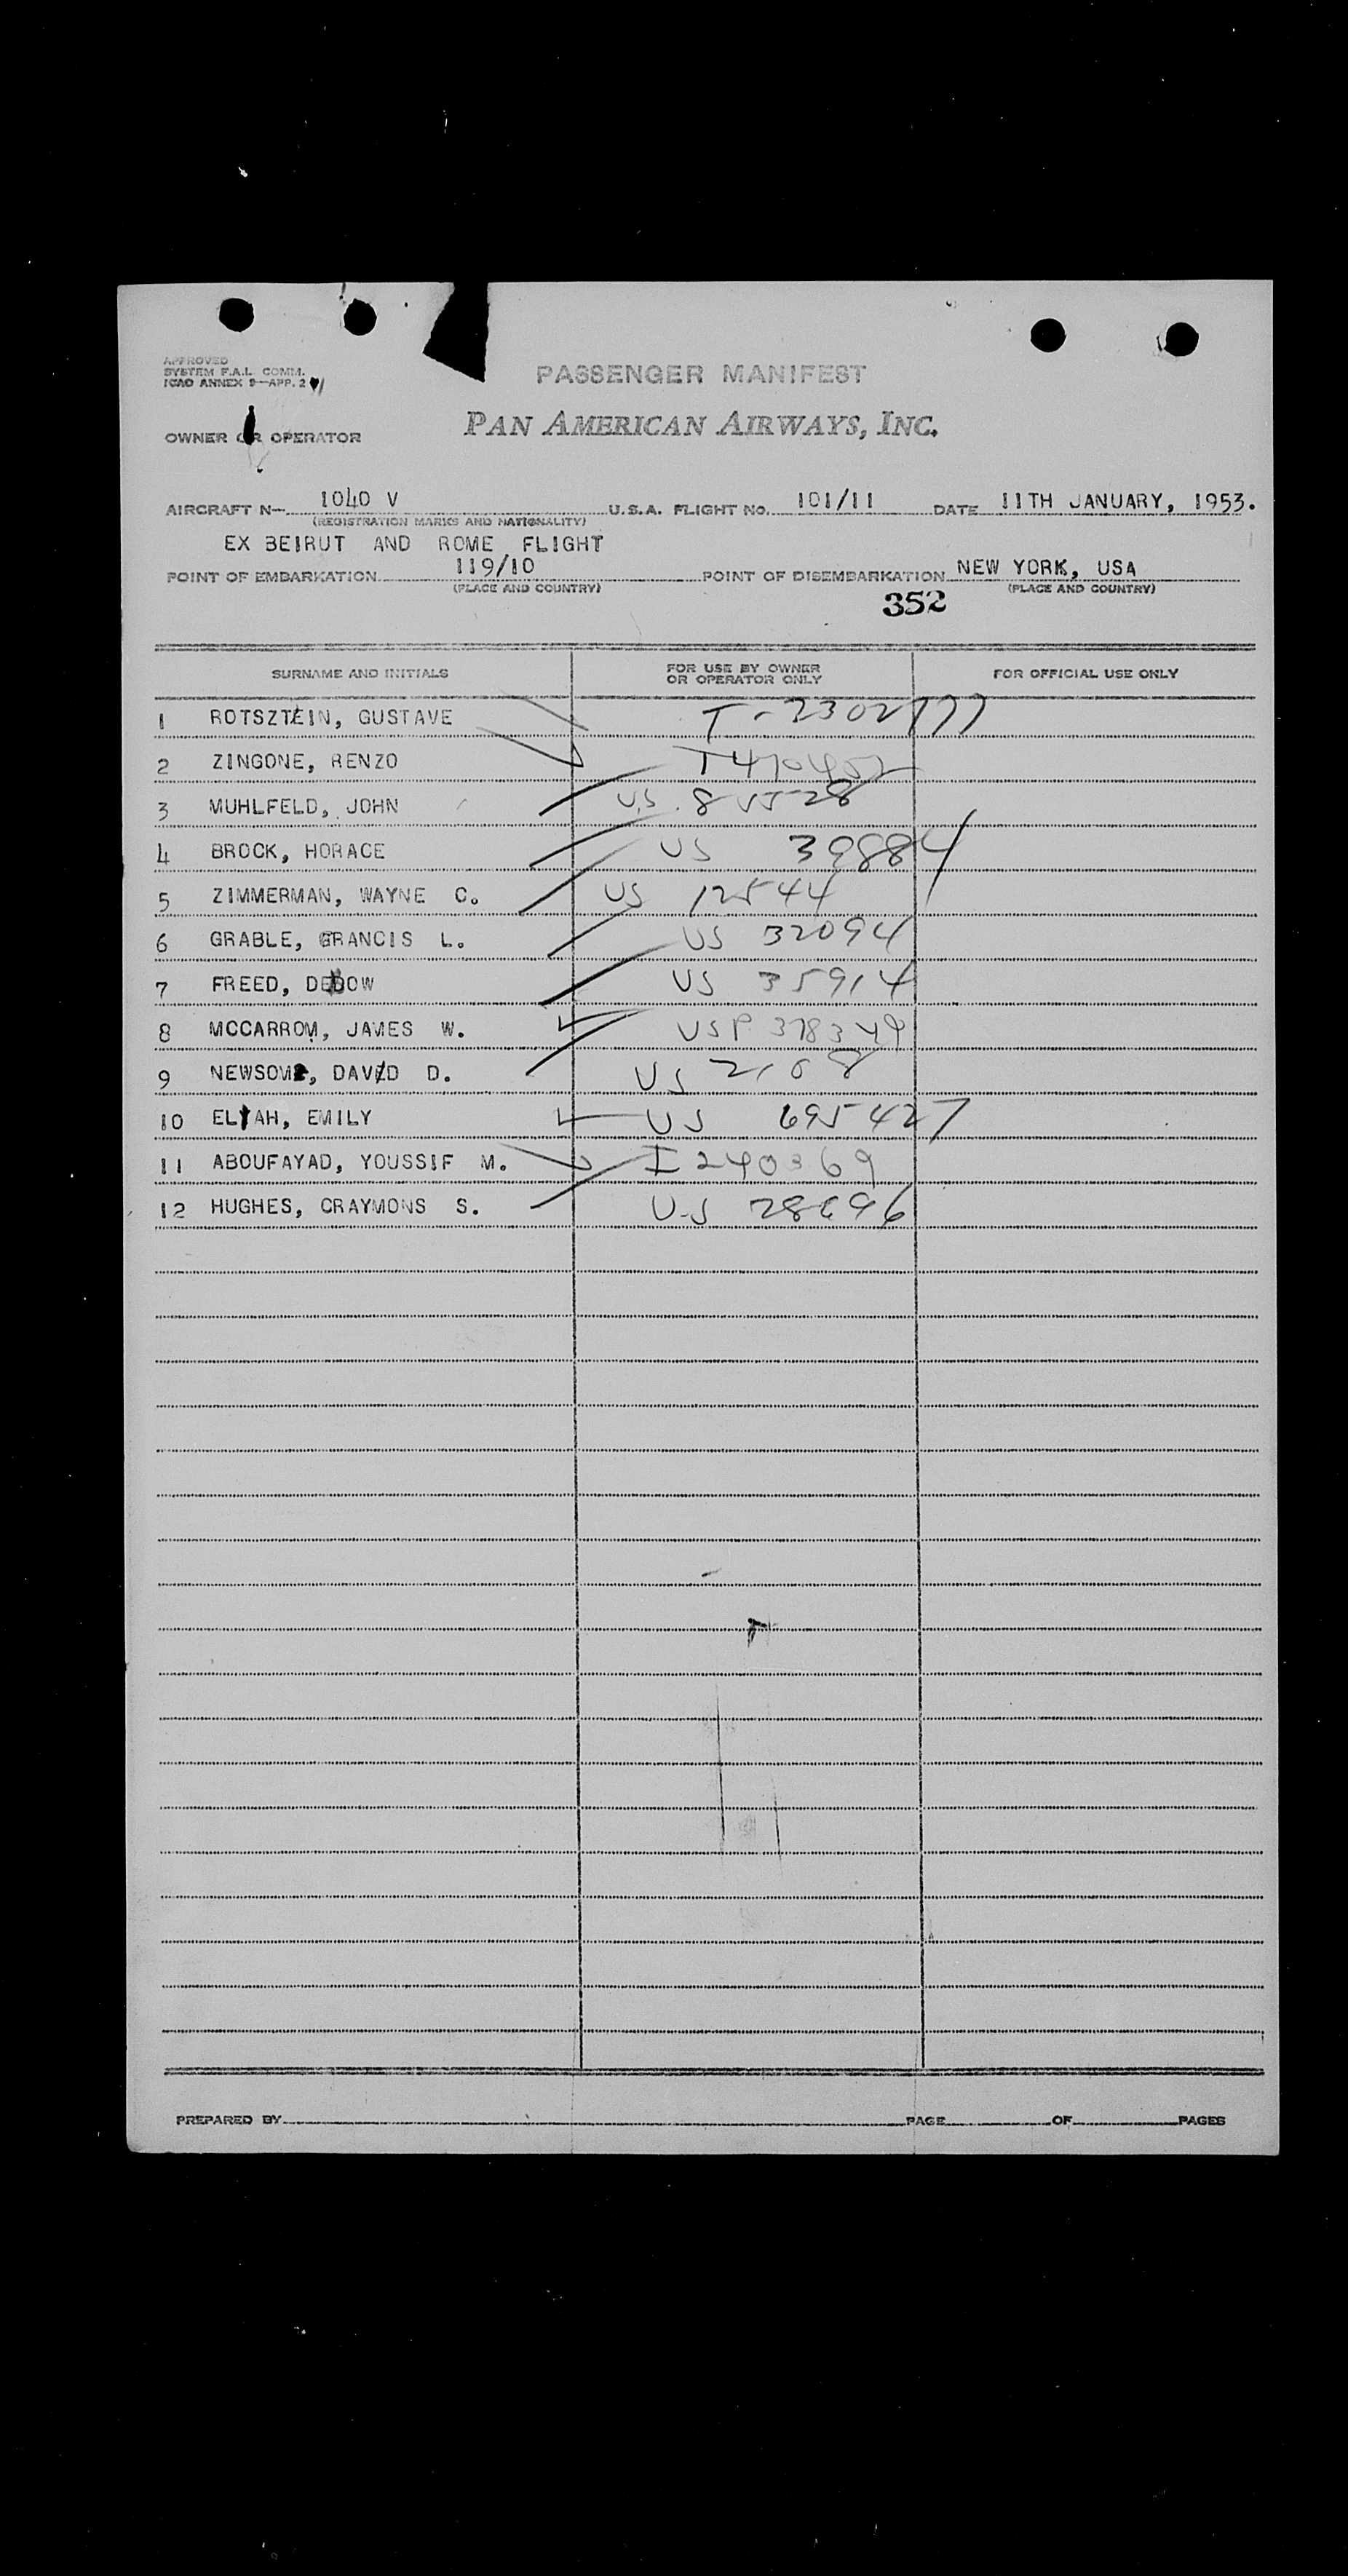 APPROVED
SYSTEM F.A.L. COMM.
ICAO ANNEX 9—APP. 2
PASSENGER MANIFEST
OWNER OR OPERATOR
PAN AMERICAN AIRWAYS, INC.
AIRCRAFT N— 1040 V U.S.A. FLIGHT NO. 101/11 DATE 11TH JANUARY, 1953.
(REGISTRATION MARKS AND NATIONALITY)
EX BEIRUT AND ROME FLIGHT
POINT OF EMBARKATION 119/10 POINT OF DISEMBARKATION NEW YORK, USA
(PLACE AND COUNTRY) (PLACE AND COUNTRY)
352
SURNAME AND INITIALS FOR USE BY OWNER OR OPERATOR ONLY FOR OFFICIAL USE ONLY
1 ROTSZTEIN, GUSTAVE T-2302177
2 ZINGONE, RENZO
3 MUHLFELD, JOHN U.S.
4 BROCK, HORACE US 39884
5 ZIMMERMAN, WAYNE C. US 12544
6 GRABLE, GRANCIS L. US 32094
7 FREED, US 35914
8 MCCARROM, JAMES W. USP 378349
9 NEWSOME, DAVID D. US
10 ELYAH, EMILY US 695427
11 ABOUFAYAD, YOUSSIF M. I 240369
12 HUGHES, CRAYMONS S. U-S 28696
PREPARED BY PAGE OF PAGES